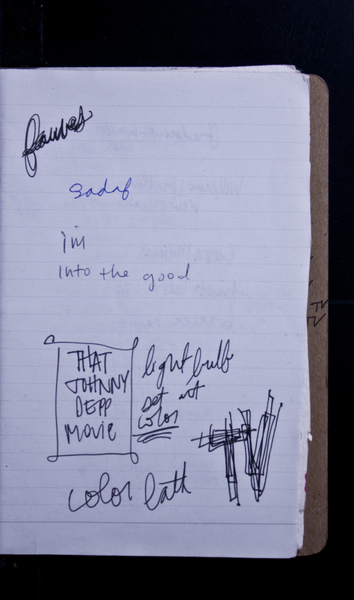 fauves
sadaf
i'm
into the good
THAT
JOHNNY
DEPP
MOVIE
light bulb
set art
color
TV
color bath